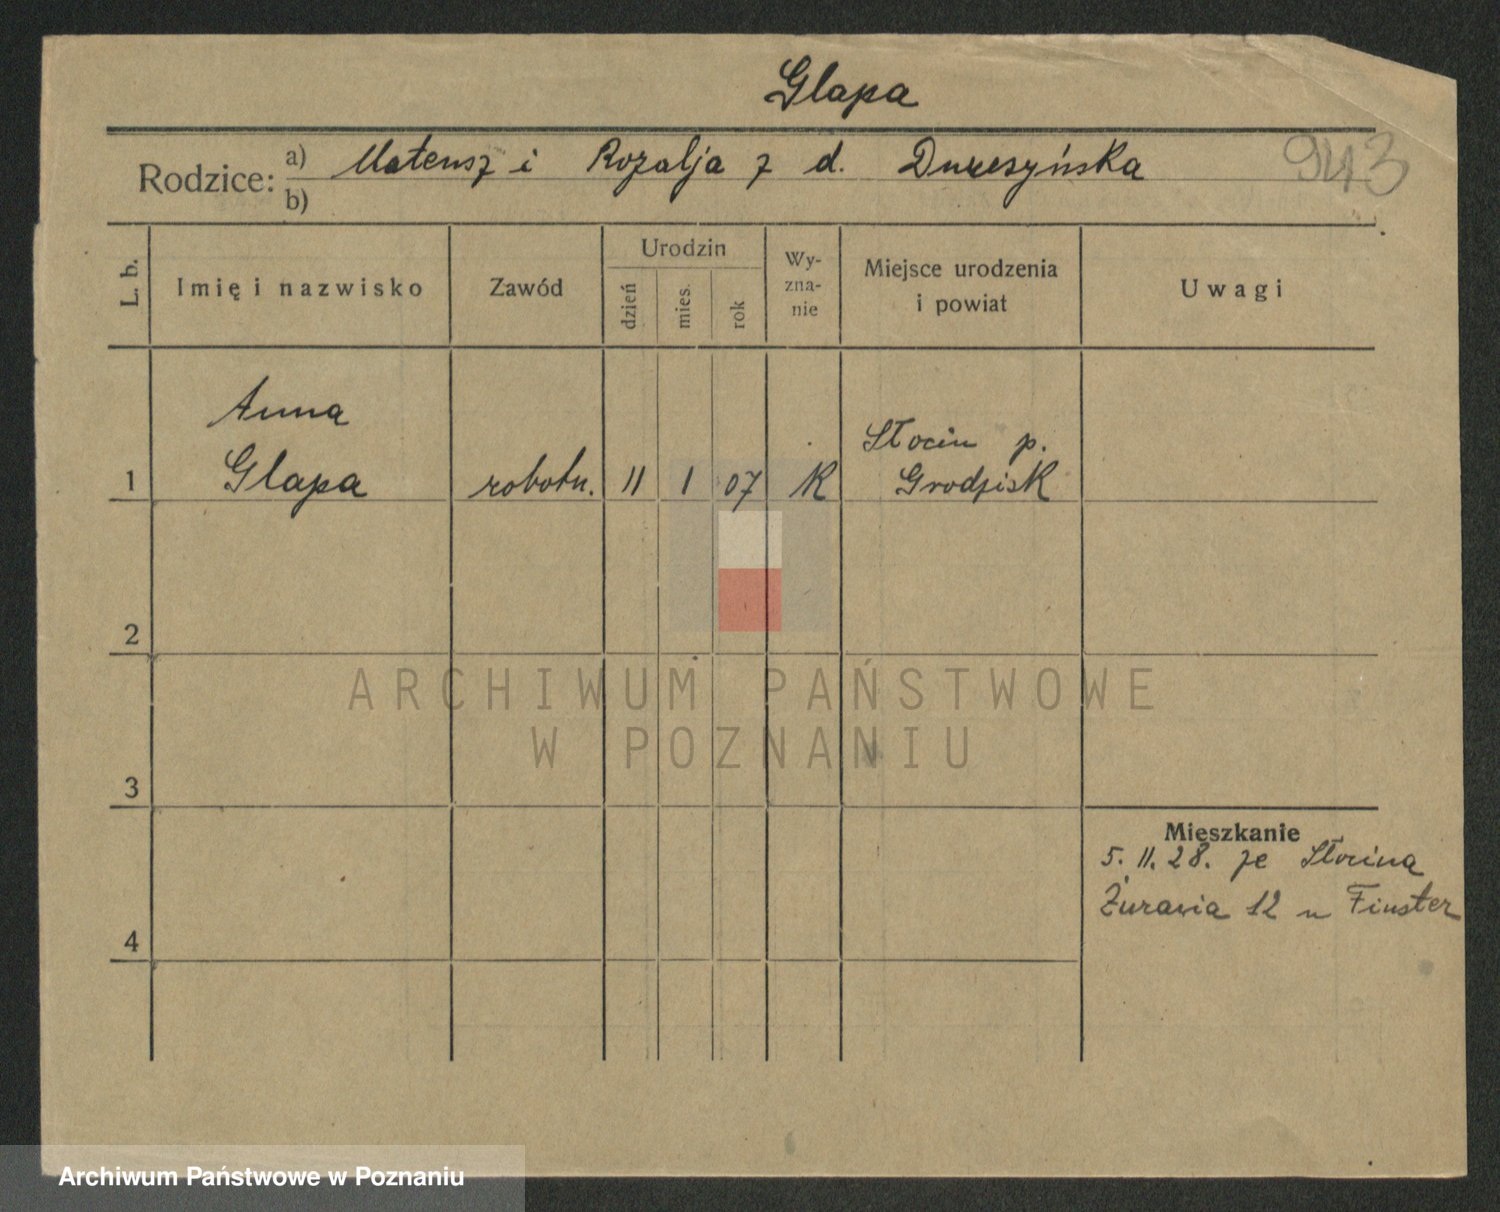 Glapa
Rodzice: a) Mateusz i Rozalja z d.
b)
943
L. b.
Imię i nazwisko
Zawód
Urodzin
dzień
mies.
rok
Wy-
zna-
nie
Miejsce urodzenia
i powiat
Uwagi
Anna
1 Glapa robotn. 11 1 07 K
Słocin p.
Grodzisk
2
3
4
ARCHIWUM PAŃSTWOWE
W POZNANIU
Mieszkanie
5. 11. 28. ze Słocina
Żurawia 12 u Finster
Archiwum Państwowe w Poznaniu